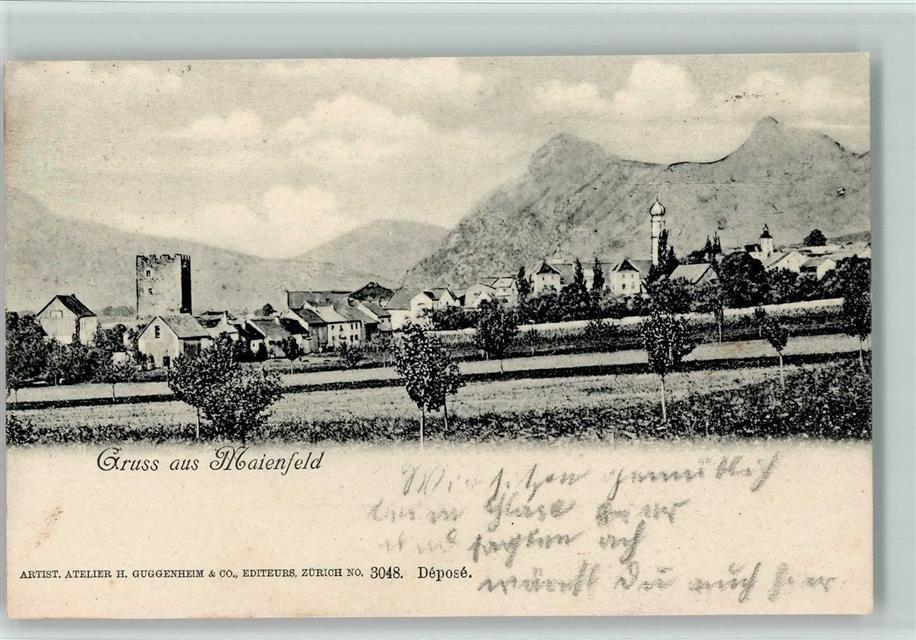 Gruss aus Maienfeld
Wir sitzen gemütlich
beim Glase Bier
und sagten ach
wärst Du auch hier
ARTIST. ATELIER H. GUGGENHEIM & CO., EDITEURS, ZÜRICH NO. 3048. Déposé.